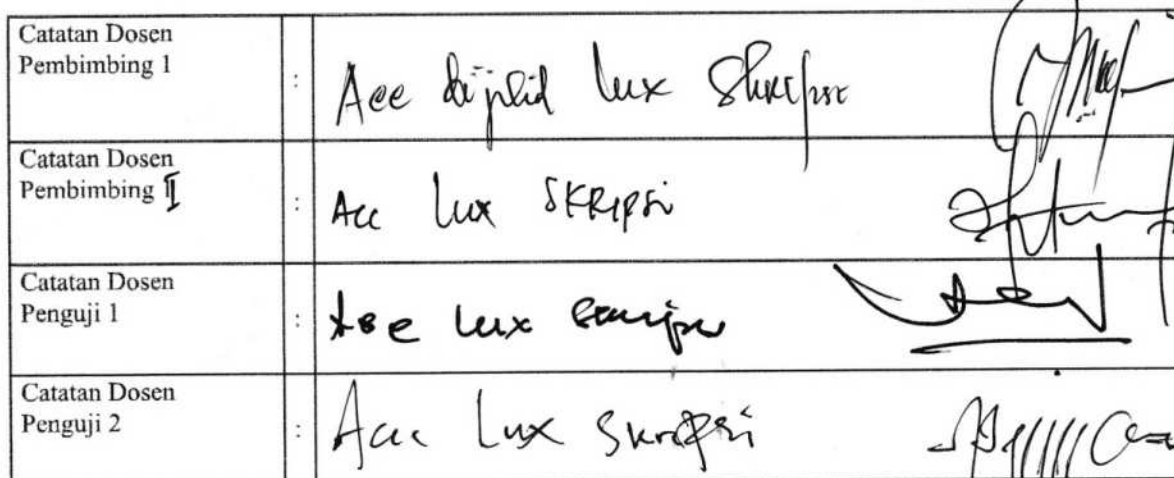 Catatan Dosen
Pembimbing 1
:
Acc dijilid lux Skripsi
Catatan Dosen
Pembimbing II
:
Acc lux SKRIPSi
Catatan Dosen
Penguji 1
:
Acc lux Skripsi
Catatan Dosen
Penguji 2
:
Acc Lux Skripsi